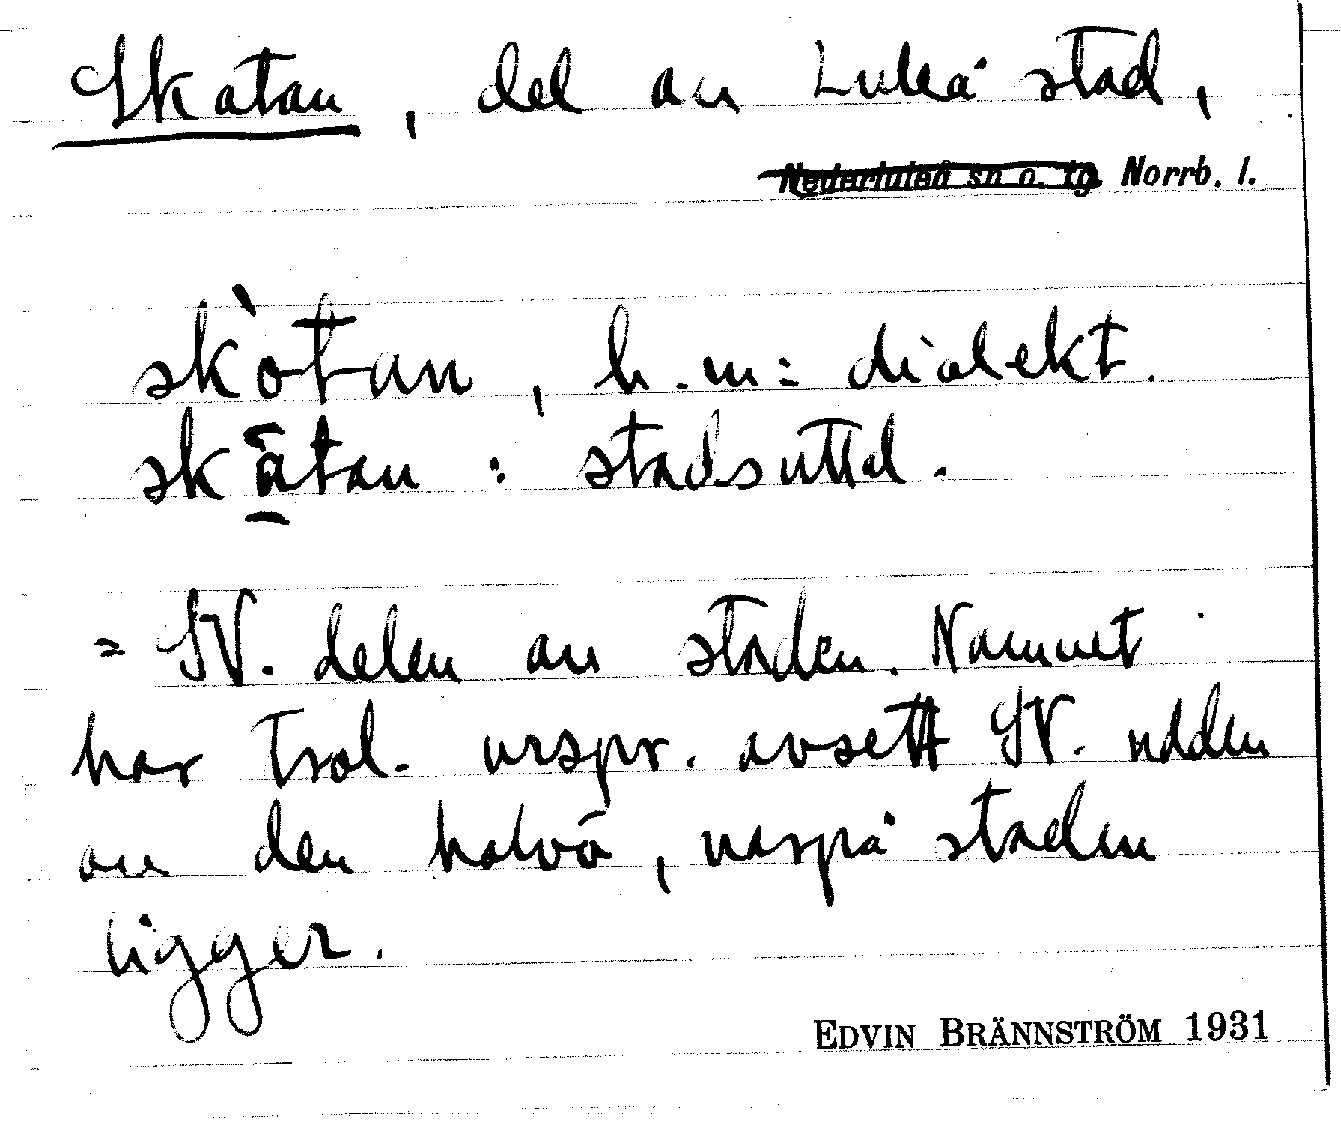 Skatan, del av Luleå stad,
Nederluleå sn o. tg Norrb. l.
skòtan, h.m.: dialekt.
skātan : stadsuttal.
= SV. delen av staden. Namnet
har trol. urspr. avsett SV. udden
av den halvö, varpå staden
ligger.
EDVIN BRÄNNSTRÖM 1931